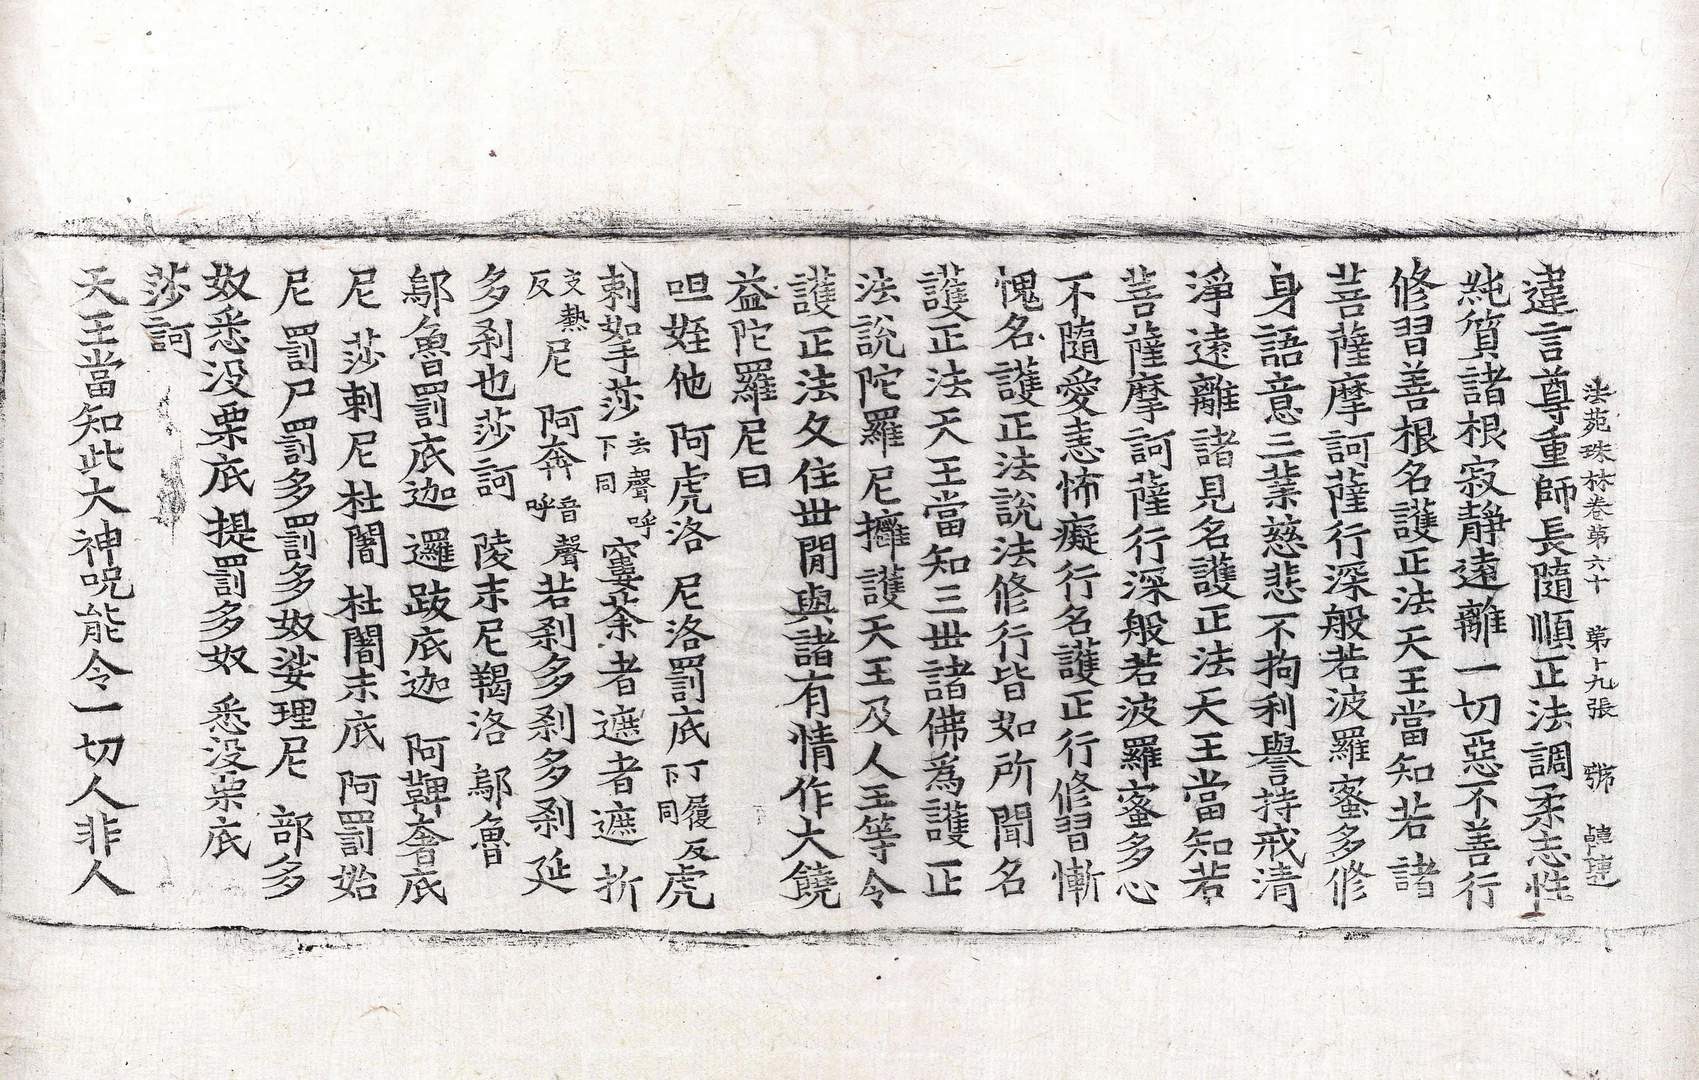 法苑珠林卷第六十 第十九張 號
違言尊重師長隨順正法調柔志性
純質諸根寂靜遠離一切惡不善行
修習善根名護正法天王當知若諸
菩薩摩訶薩行深般若波羅蜜多修
身語意三業慈悲不拘利譽持戒清
淨遠離諸見名護正法天王當知若
菩薩摩訶薩行深般若波羅蜜多心
不隨愛恚怖癡行名護正行修習慚
愧名護正法說法修行皆如所聞名
護正法天王當知三世諸佛為護正
法說陀羅尼擁護天王及人王等令
護正法久住世間與諸有情作大饒
益陀羅尼曰
呾姪他 阿虎洛 尼洛罰底丁履反下同虎
剌拏莎去聲呼下同窶荼者遮者遮 折
支熱反尼 阿奔音聲呼若剎多剎多剎 延
多剎也莎訶 陵末尼羯洛 鄔魯
鄔魯罰底迦 邏跋底迦 阿鞞奢底
尼 莎剌尼 杜闍 杜闍末底 阿罰始
尼 罰尸罰多罰多奴娑理尼 部多
奴悉没栗底 提罰多奴 悉没栗底
莎訶
天王當知此大神呪能令一切人非人